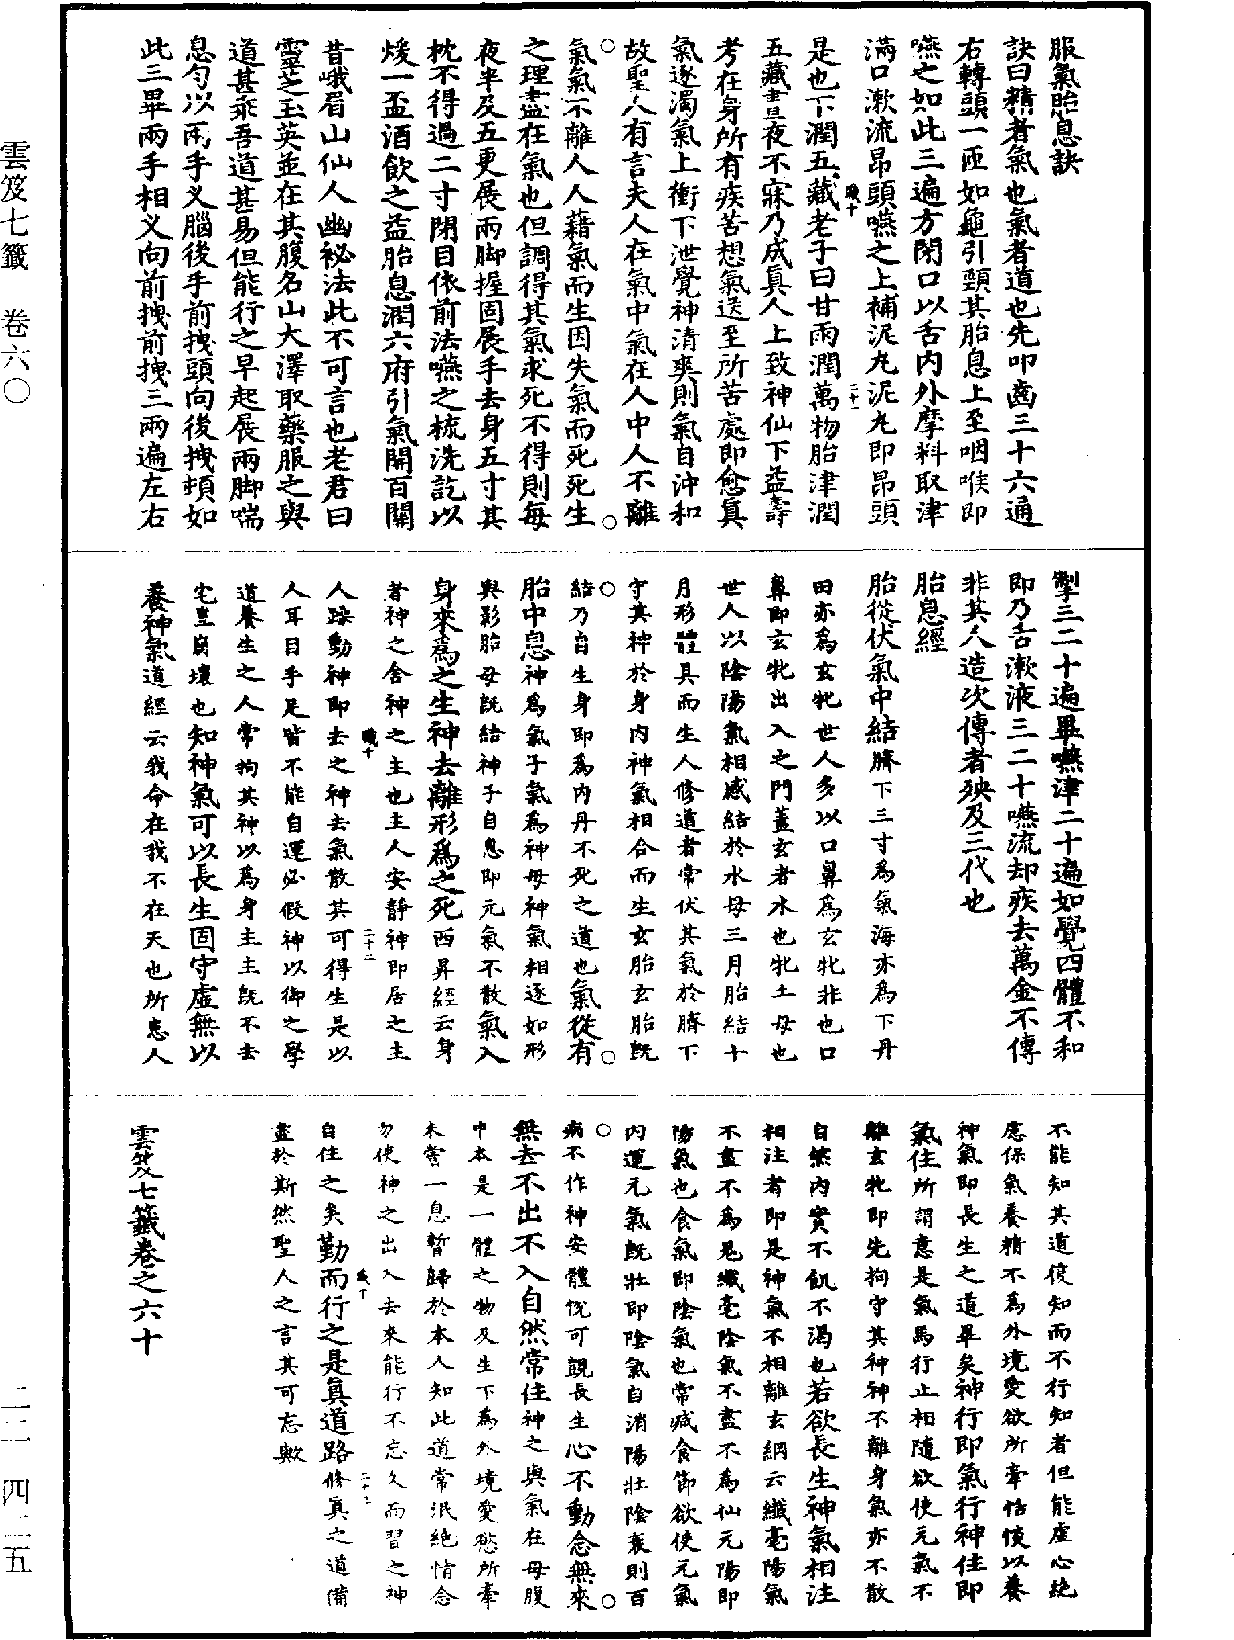 雲笈七籤 卷六〇
服氣胎息訣
訣曰精者氣也氣者道也先叩齒三十六通
右轉頭一匝如龜引頸其胎息上至咽喉即
嚥之如此三遍方閉口以舌內外摩料取津
滿口漱流昂頭嚥之上補泥丸泥丸即昂頭
是也下潤五藏老子曰甘雨潤萬物胎津潤
五藏晝夜不寐乃成真人上致神仙下益壽
考在身所有疾苦想氣送至所苦處即愈真
氣逐濁氣上衝下泄覺神清爽則氣自沖和
故聖人有言夫人在氣中氣在人中人不離
氣氣不離人人藉氣而生因失氣而死死生
之理盡在氣也但調得其氣求死不得則每
夜半及五更展兩脚握固展手去身五寸其
枕不得過二寸閉目依前法嚥之梳洗訖以
煖一盃酒飲之益胎息潤六府引氣開百關
昔峨眉山仙人幽祕法此不可言也老君曰
靈芝玉英並在其腹名山大澤取藥服之與
道甚乖吾道甚易但能行之早起展兩脚喘
息勻以兩手叉腦後手前拽頭向後拽頓如
此三畢兩手相叉向前拽前拽三兩遍左右
掣三二十遍畢嚥津二十遍如覺四體不和
即乃舌漱液三二十嚥流却疾去萬金不傳
非其人造次傳者殃及三代也
胎息經
胎從伏氣中結臍下三寸為氣海亦為下丹
田亦為玄牝世人多以口鼻為玄牝非也口
鼻即玄牝出入之門蓋玄者水也牝土母也
世人以陰陽氣相感結於水母三月胎結十
月形體具而生人修道者常伏其氣於臍下
守其神於身內神氣相合而生玄胎玄胎既
結乃自生身即為內丹不死之道也氣從有
胎中息神為氣子氣為神母神氣相逐如形
與影胎母既結神子自息即元氣不散氣入
身來為之生神去離形為之死西昇經云身
者神之舍神之主也主人安靜神即居之主
人躁動神即去之神去氣散其可得生是以
人耳目手足皆不能自運必假神以御之學
道養生之人常拘其神以為身主主既不去
宅豈崩壞也知神氣可以長生固守虛無以
養神氣道經云我命在我不在天也所患人
不能知其道復知而不行知者但能虛心絕
慮保氣養精不為外境愛欲所牽恬愉以養
神氣即長生之道畢矣神行即氣行神住即
氣住所謂意是氣馬行止相隨欲使元氣不
離玄牝即先拘守其神神不離身氣亦不散
自然內實不飢不渴也若欲長生神氣相注
相注者即是神氣不相離玄綱云纖毫陽氣
不盡不為鬼纖毫陰氣不盡不為仙元陽即
陽氣也食氣即陰氣也常減食節欲使元氣
內運元氣既壯即陰氣自消陽壯陰衰則百
病不作神安體悅可覬長生心不動念無來
無去不出不入自然常住神之與氣在母腹
中本是一體之物及生下為外境愛慾所牽
未嘗一息暫歸於本人知此道常泯絕情念
勿使神之出入去來能行不忘久而習之神
自住之矣勤而行之是真道路修真之道備
盡於斯然聖人之言其可忘歟
雲笈七籤卷之六十
二二 四二五